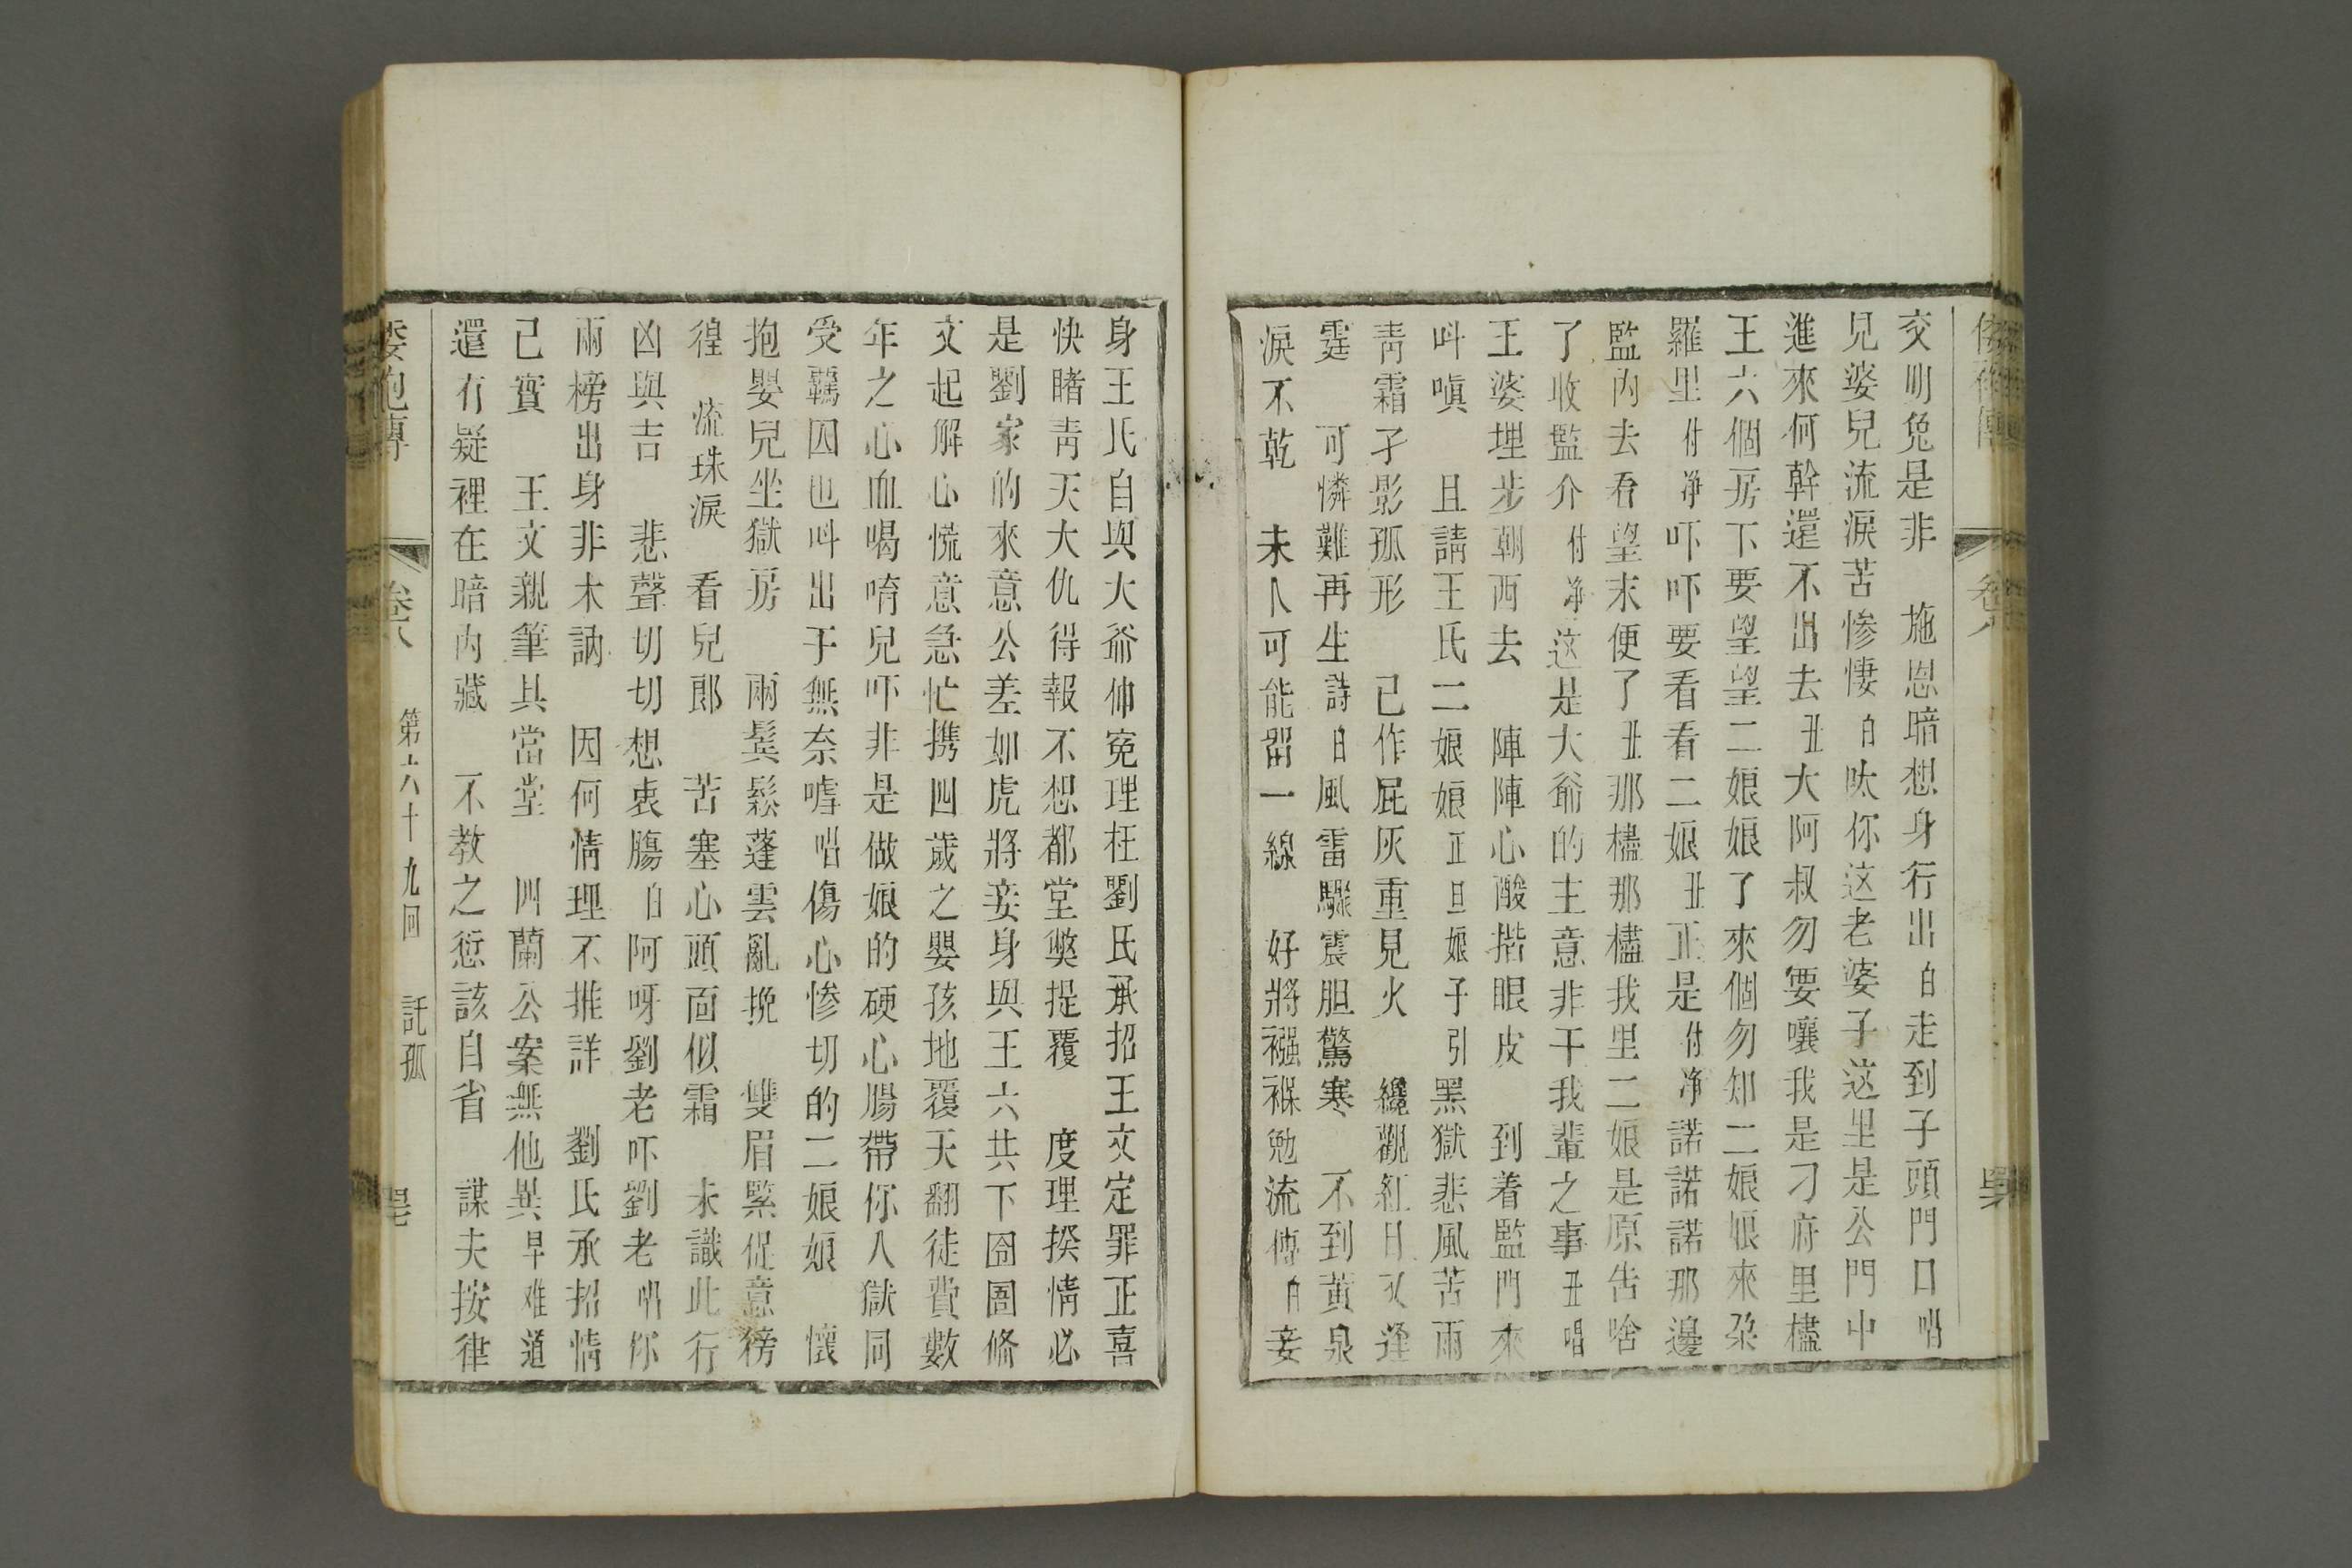 交明免是非　施恩暗想身行出白走到子頭門口唱
見婆兒流淚苦慘悽白呔你这老婆子这里是公門中
進來何幹還不出去丑大阿叔勿要嚷我是刁府里櫨
王六個房下要望望二娘娘了來個勿知二娘娘來朶
羅里付净吓吓要看看二娘丑正是付净諾諾諾那邊
監內去看望末便了丑那櫨那櫨我里二娘是原告啥
了收監介付净这是大爺的主意非干我輩之事丑唱
王婆埋步朝西去　陣陣心酸揩眼皮　到着監門來
呌嗔　且請王氏二娘娘正旦娘子引黑獄悲風苦雨
靑霜孑影孤形　已作屁灰重見火　纔觀紅日又逢
霆　可憐難再生詩白風雷驟震胆驚寒　不到黃泉
淚不乾　未卜可能留一線　好將襁褓勉流傳白妾
身王氏自與大爺伸寃理枉劉氏承招王文定罪正喜
快睹靑天大仇得報不想都堂獘提覆　度理揆情必
是劉家的來意公差如虎將妾身與王六共下囹圄偹
文起解心慌意急忙携四歲之嬰孩地覆天翻徒費數
年之心血喝唷兒吓非是做娘的硬心腸帶你八獄同
受羈囚也呌出于無奈嘑唱傷心慘切的二娘娘　懷
抱嬰兒坐獄房　兩鬓鬆蓬雲亂挽　雙眉緊促意徬
徨　流珠淚　看兒郎　苦塞心頭面似霜　未識此行
凶與吉　悲聲切切想衷腸白阿呀劉老吓劉老唱你
兩榜出身非木訥　因何情理不推詳　劉氏承招情
己實　王文親筆具當堂　四蘭公案無他異早难道
還有疑裡在暗內藏　不教之愆該自省　謀夫按律
倭袍傳　卷八　第六十九囘　託孤